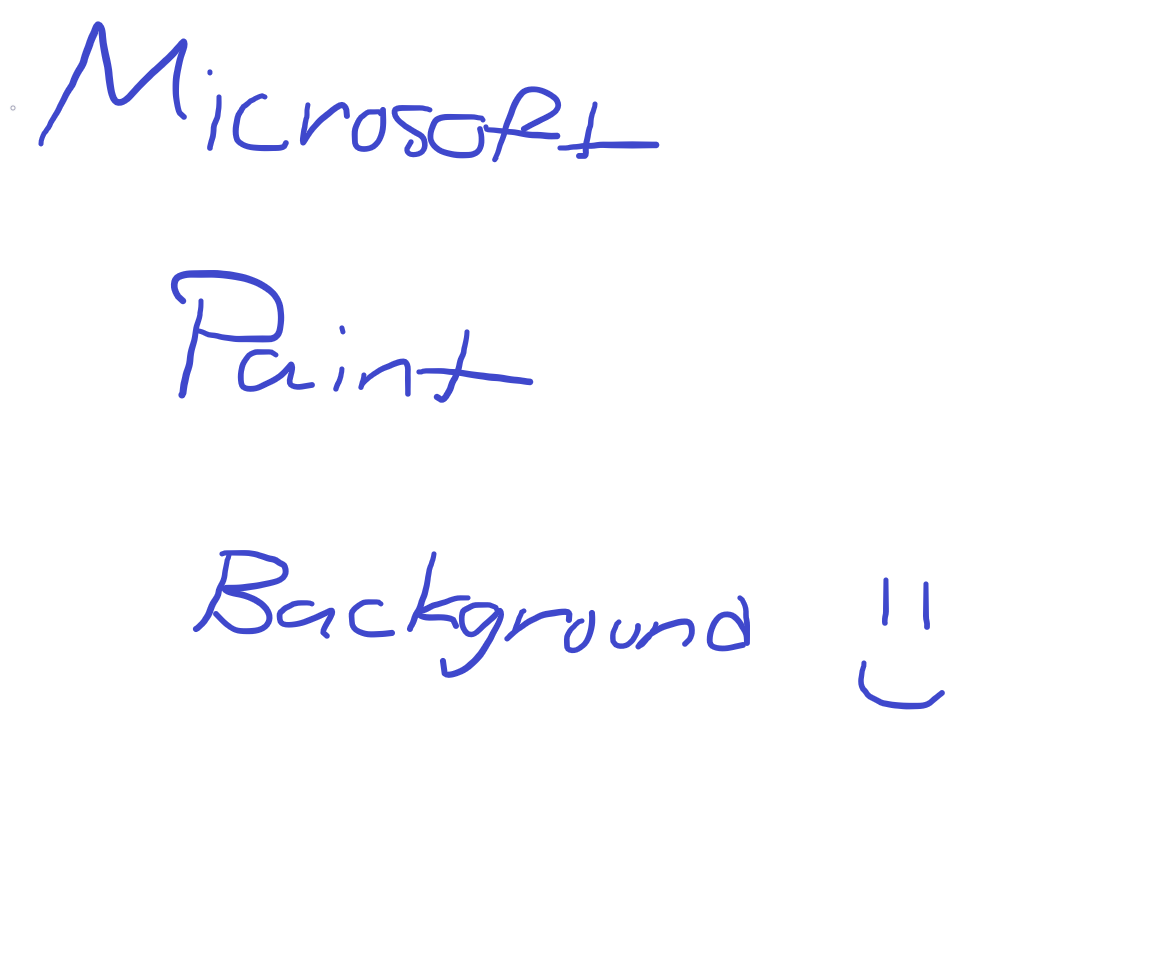 Microsoft
Paint
Background